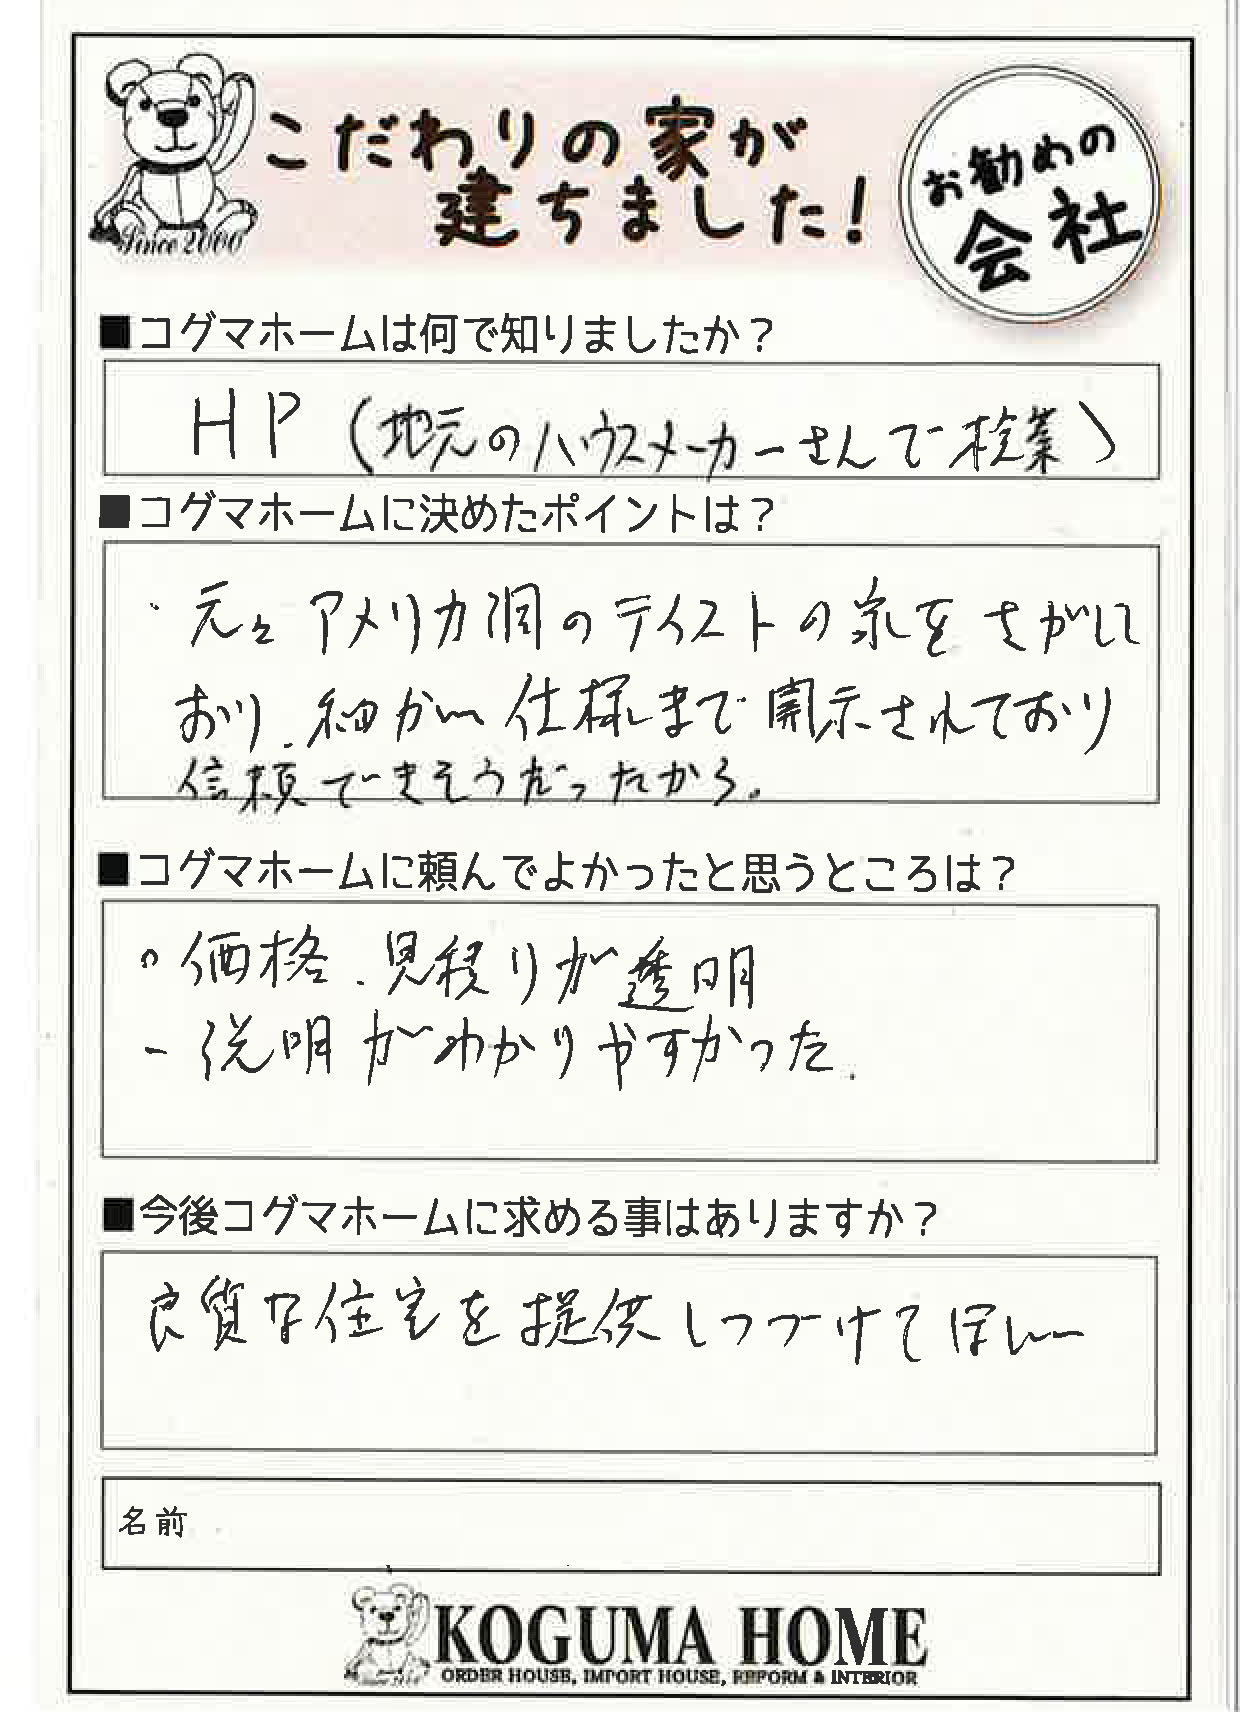 こだわりの家が
建ちました!
お勧めの
会社
Since 2000
■コグマホームは何で知りましたか?
HP (地元のハウスメーカーさんで検索)
■コグマホームに決めたポイントは?
・元々アメリカ調のテイストの家をさがして
おり、細かい仕様まで開示されており
信頼できそうだったから。
■コグマホームに頼んでよかったと思うところは?
・価格、見積りが透明
・説明がわかりやすかった.
■今後コグマホームに求める事はありますか?
良質な住宅を提供しつづけてほしい
名前
Since 2000
KOGUMA HOME
ORDER HOUSE, IMPORT HOUSE, REFORM & INTERIOR